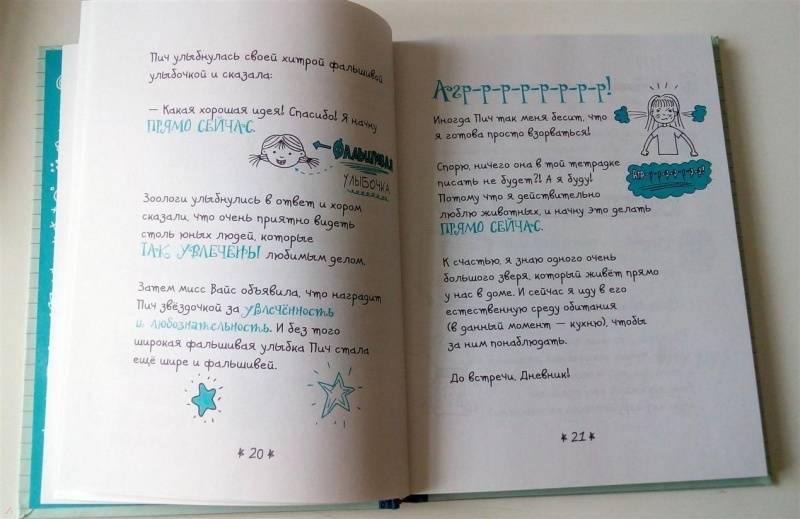 Пич улыбнулась своей хитрой фальшивой
улыбочкой и сказала:
— Какая хорошая идея! Спасибо! Я начну
ПРЯМО СЕЙЧАС.
ФАЛЬШИВАЯ
УЛЫБОЧКА
Зоологи улыбнулись в ответ и хором
сказали, что очень приятно видеть
столь юных людей, которые
ТАК УВЛЕЧЕНЫ любимым делом.
Затем мисс Вайс объявила, что наградит
Пич звёздочкой за увлечённость
и любознательность. И без того
широкая фальшивая улыбка Пич стала
ещё шире и фальшивей.
* 20 *
Агр-р-р-р-р-р-р-р!
Иногда Пич так меня бесит, что
я готова просто взорваться!
Спорю, ничего она в той тетрадке
писать не будет?! А я буду!
Потому что я действительно
люблю животных, и начну это делать
ПРЯМО СЕЙЧАС.
К счастью, я знаю одного очень
большого зверя, который живёт прямо
у нас в доме. И сейчас я иду в его
естественную среду обитания
(в данный момент — кухню), чтобы
за ним понаблюдать.
До встречи, Дневник!
* 21 *